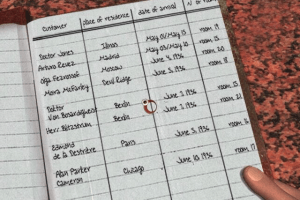 Customer place of residence date of arrival N° of room
Doctor Jones Ilinois May 04/May 13 room 19
Arturo Perez Madrid May 08/May 18 room 15
Olga Fezinozof Moscow June 3, 1936 room 20
Moira McFarley Devil Ridge June 5, 1936 room 18
Doktor
Von Bosanogues Berlin June 7, 1936 room 15
Herr Bitzstrum Berlin June 7, 1936 room 21
Edmond
de la Destrière Paris June 5, 1936 room 16
Allan Parker
Cameron Chicago June 10, 1936 room 17